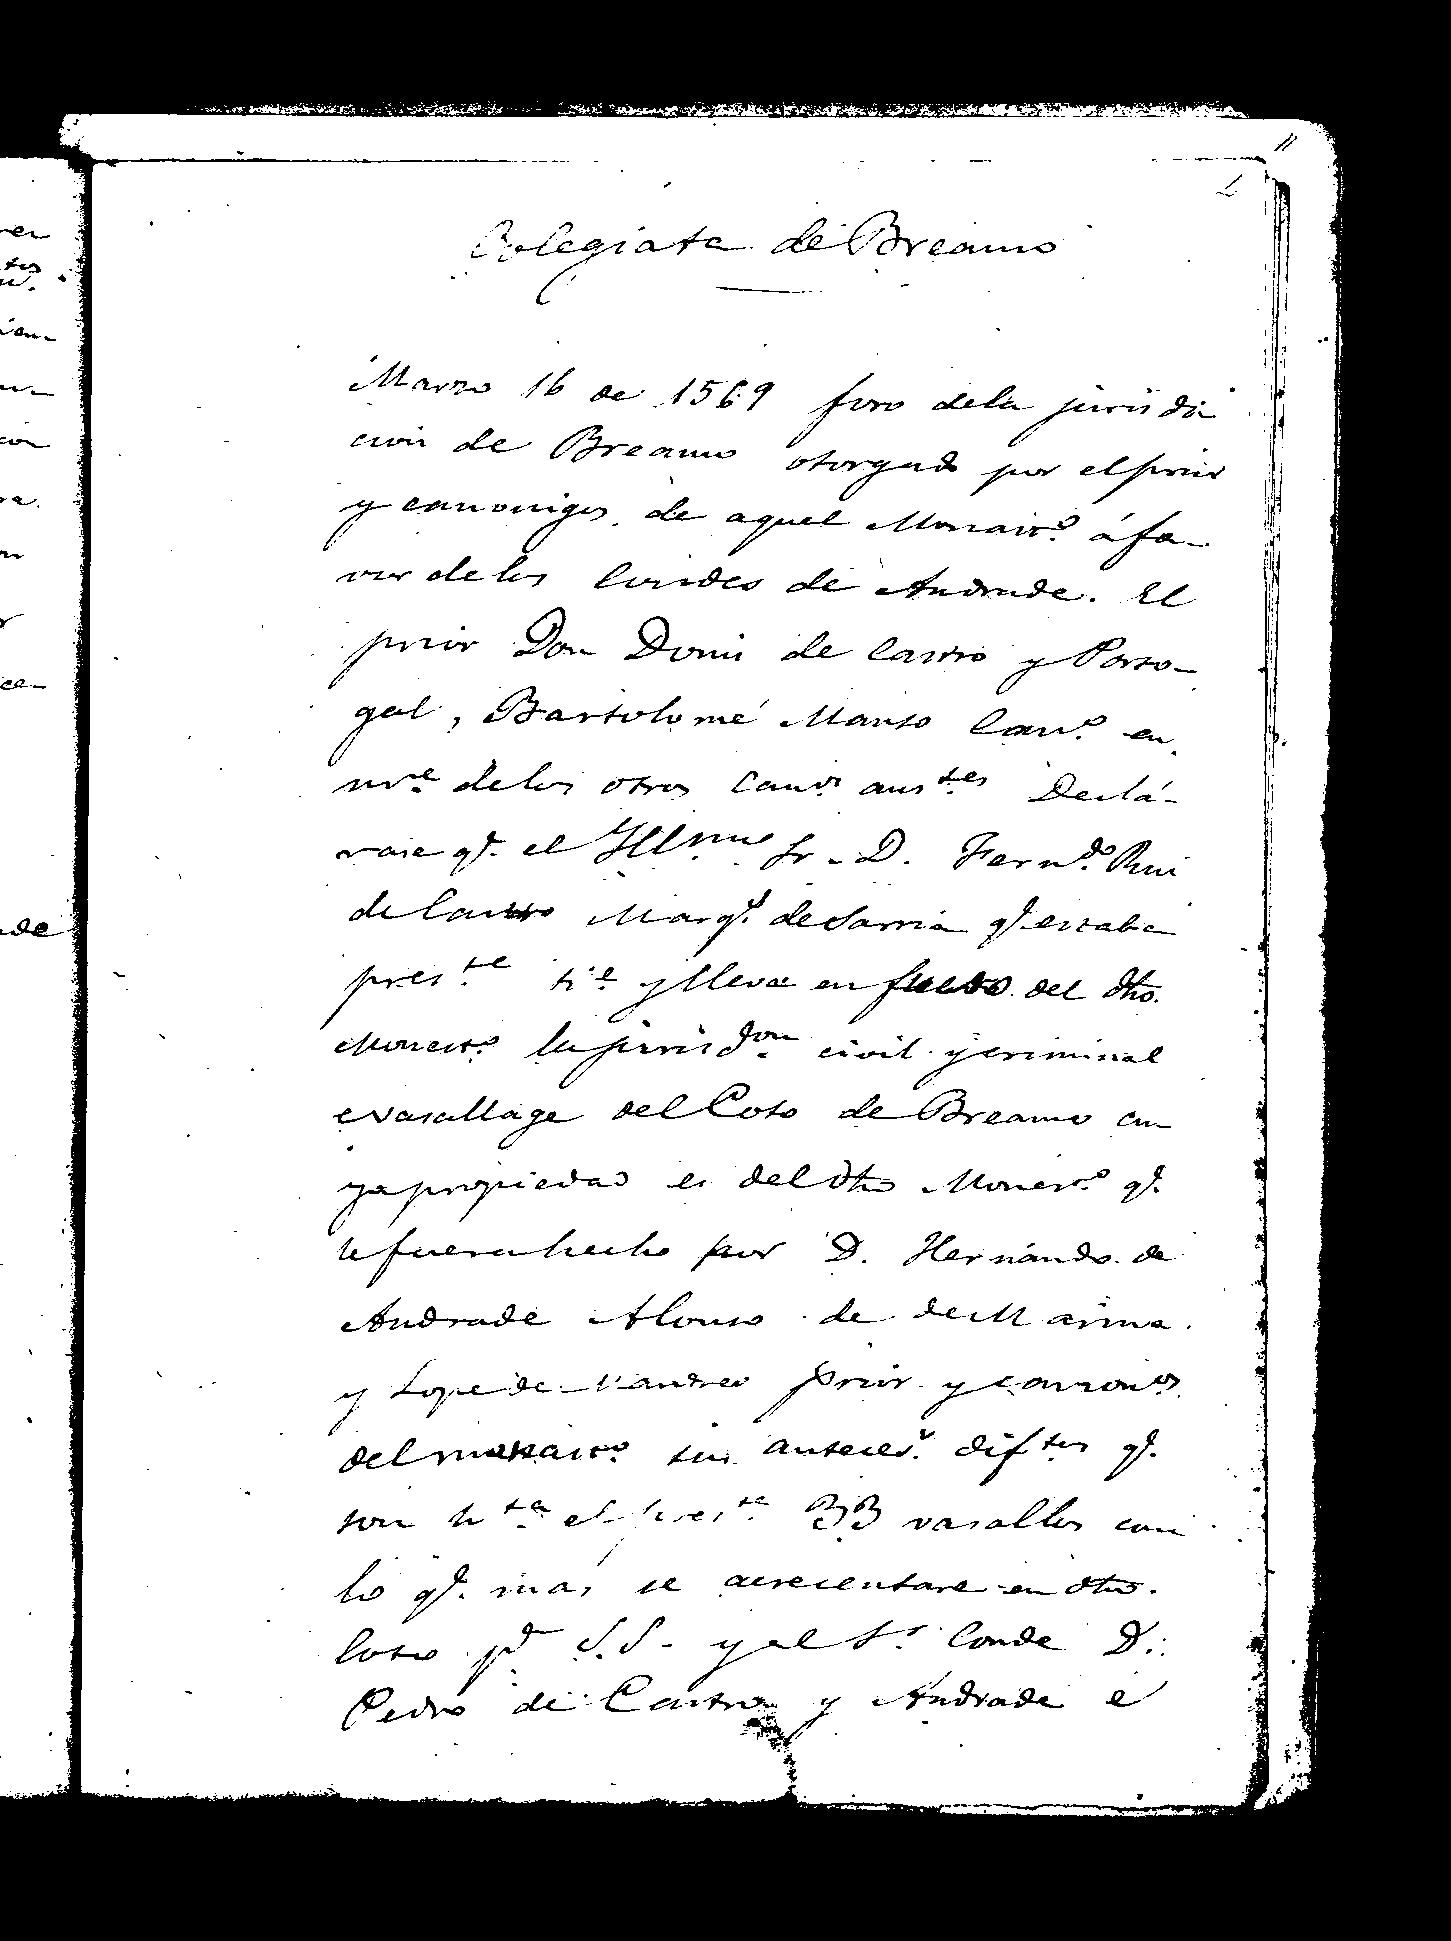 Colegiata de Breamo
Marzo 16 de 1569 foro dela jurisdi
cion de Breamo otorgado por el prior
y canonigos de aquel Monastº á fa-
vor de los Condes de Andrade. El
prior Don Domi de Castro y Porto-
gal, Bartolomé Manso Canº en
nre de los otros canos ausTes Declá-
rase q.e el Yllmo Sr. D. Fernd.o Rui
de Castro Marq.s de Sarria q.e estaba
preste ti.e y lleva en fuero del dho.
Monestº la jurisdon civil y criminal
e vasallage del Coto de Breamo cu
ya propiedad es del dho Monestº q.e
le fuera hecho por D. Hernando de
Andrade Alonso de de Marina
y Lope de prior y canonos
del monastº sus anteces.r diftos q.e
son hta el preste 33 vasallos con
lo q.e mas se acrecentare en dho.
Coto p.a S.S. y al Sr. Conde D.
Pedro de Castro y Andrade é